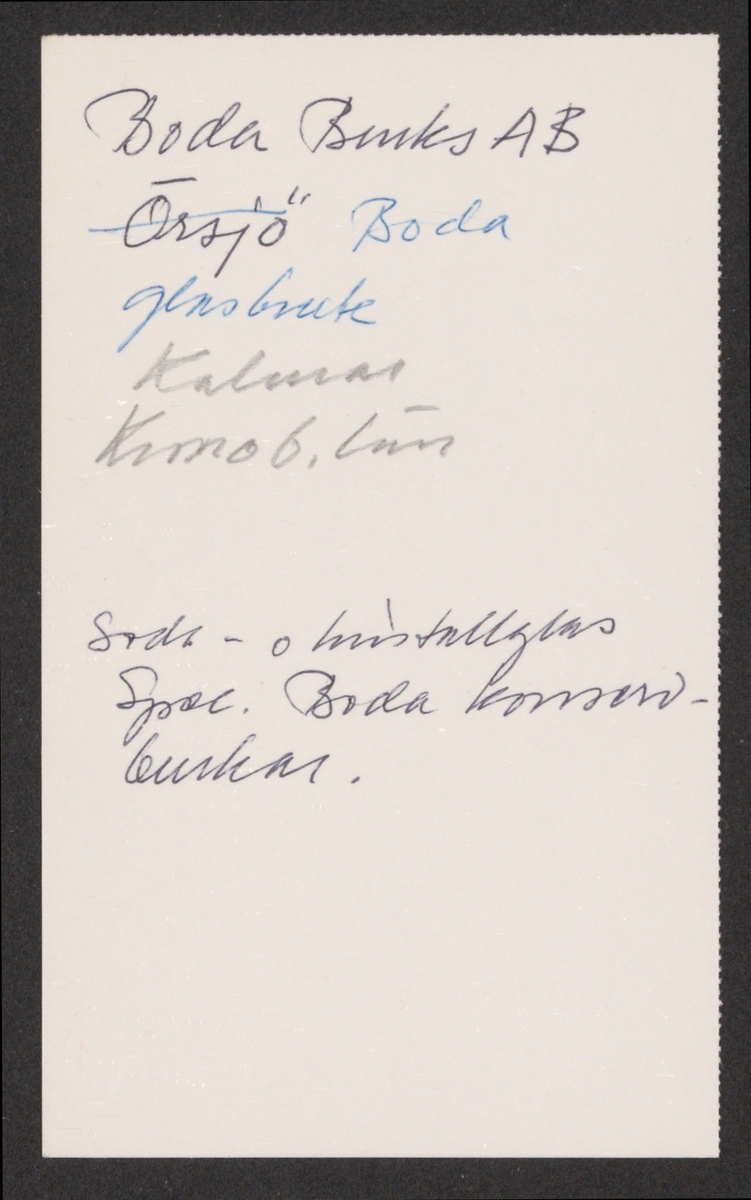 Boda Bruks AB
Örsjö Boda
glasbruk
Kalmar
Kronob. län
Soda- o kristallglas
Spec. Boda konserv-
burkar.